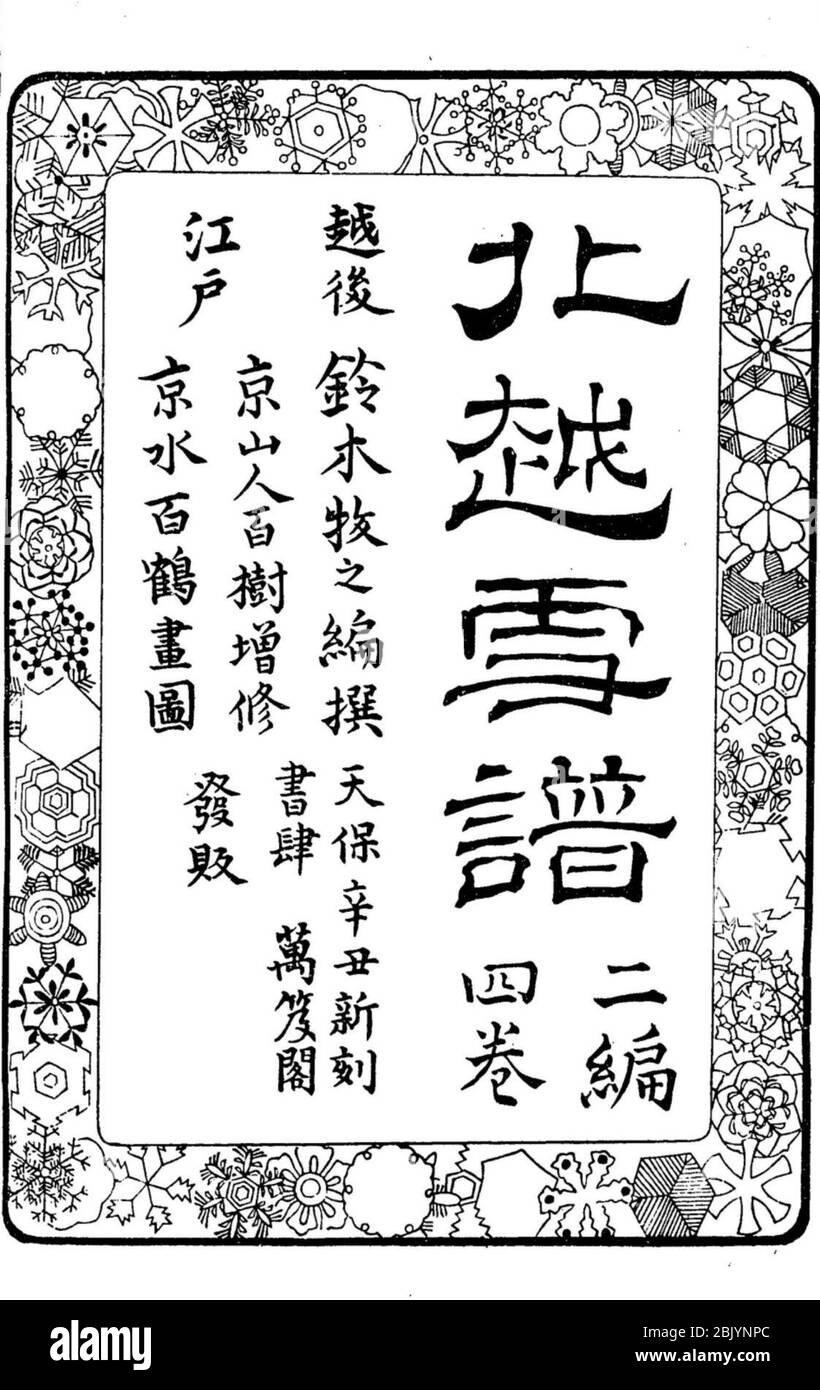 北越雪譜
二編
四卷
越後
鈴木牧之編撰
天保辛丑新刻
江戸
京山人百樹增修
京水百鶴畫圖
書肆 萬笈閣
發販
alamy
Image ID: 2BJYNPC
www.alamy.com